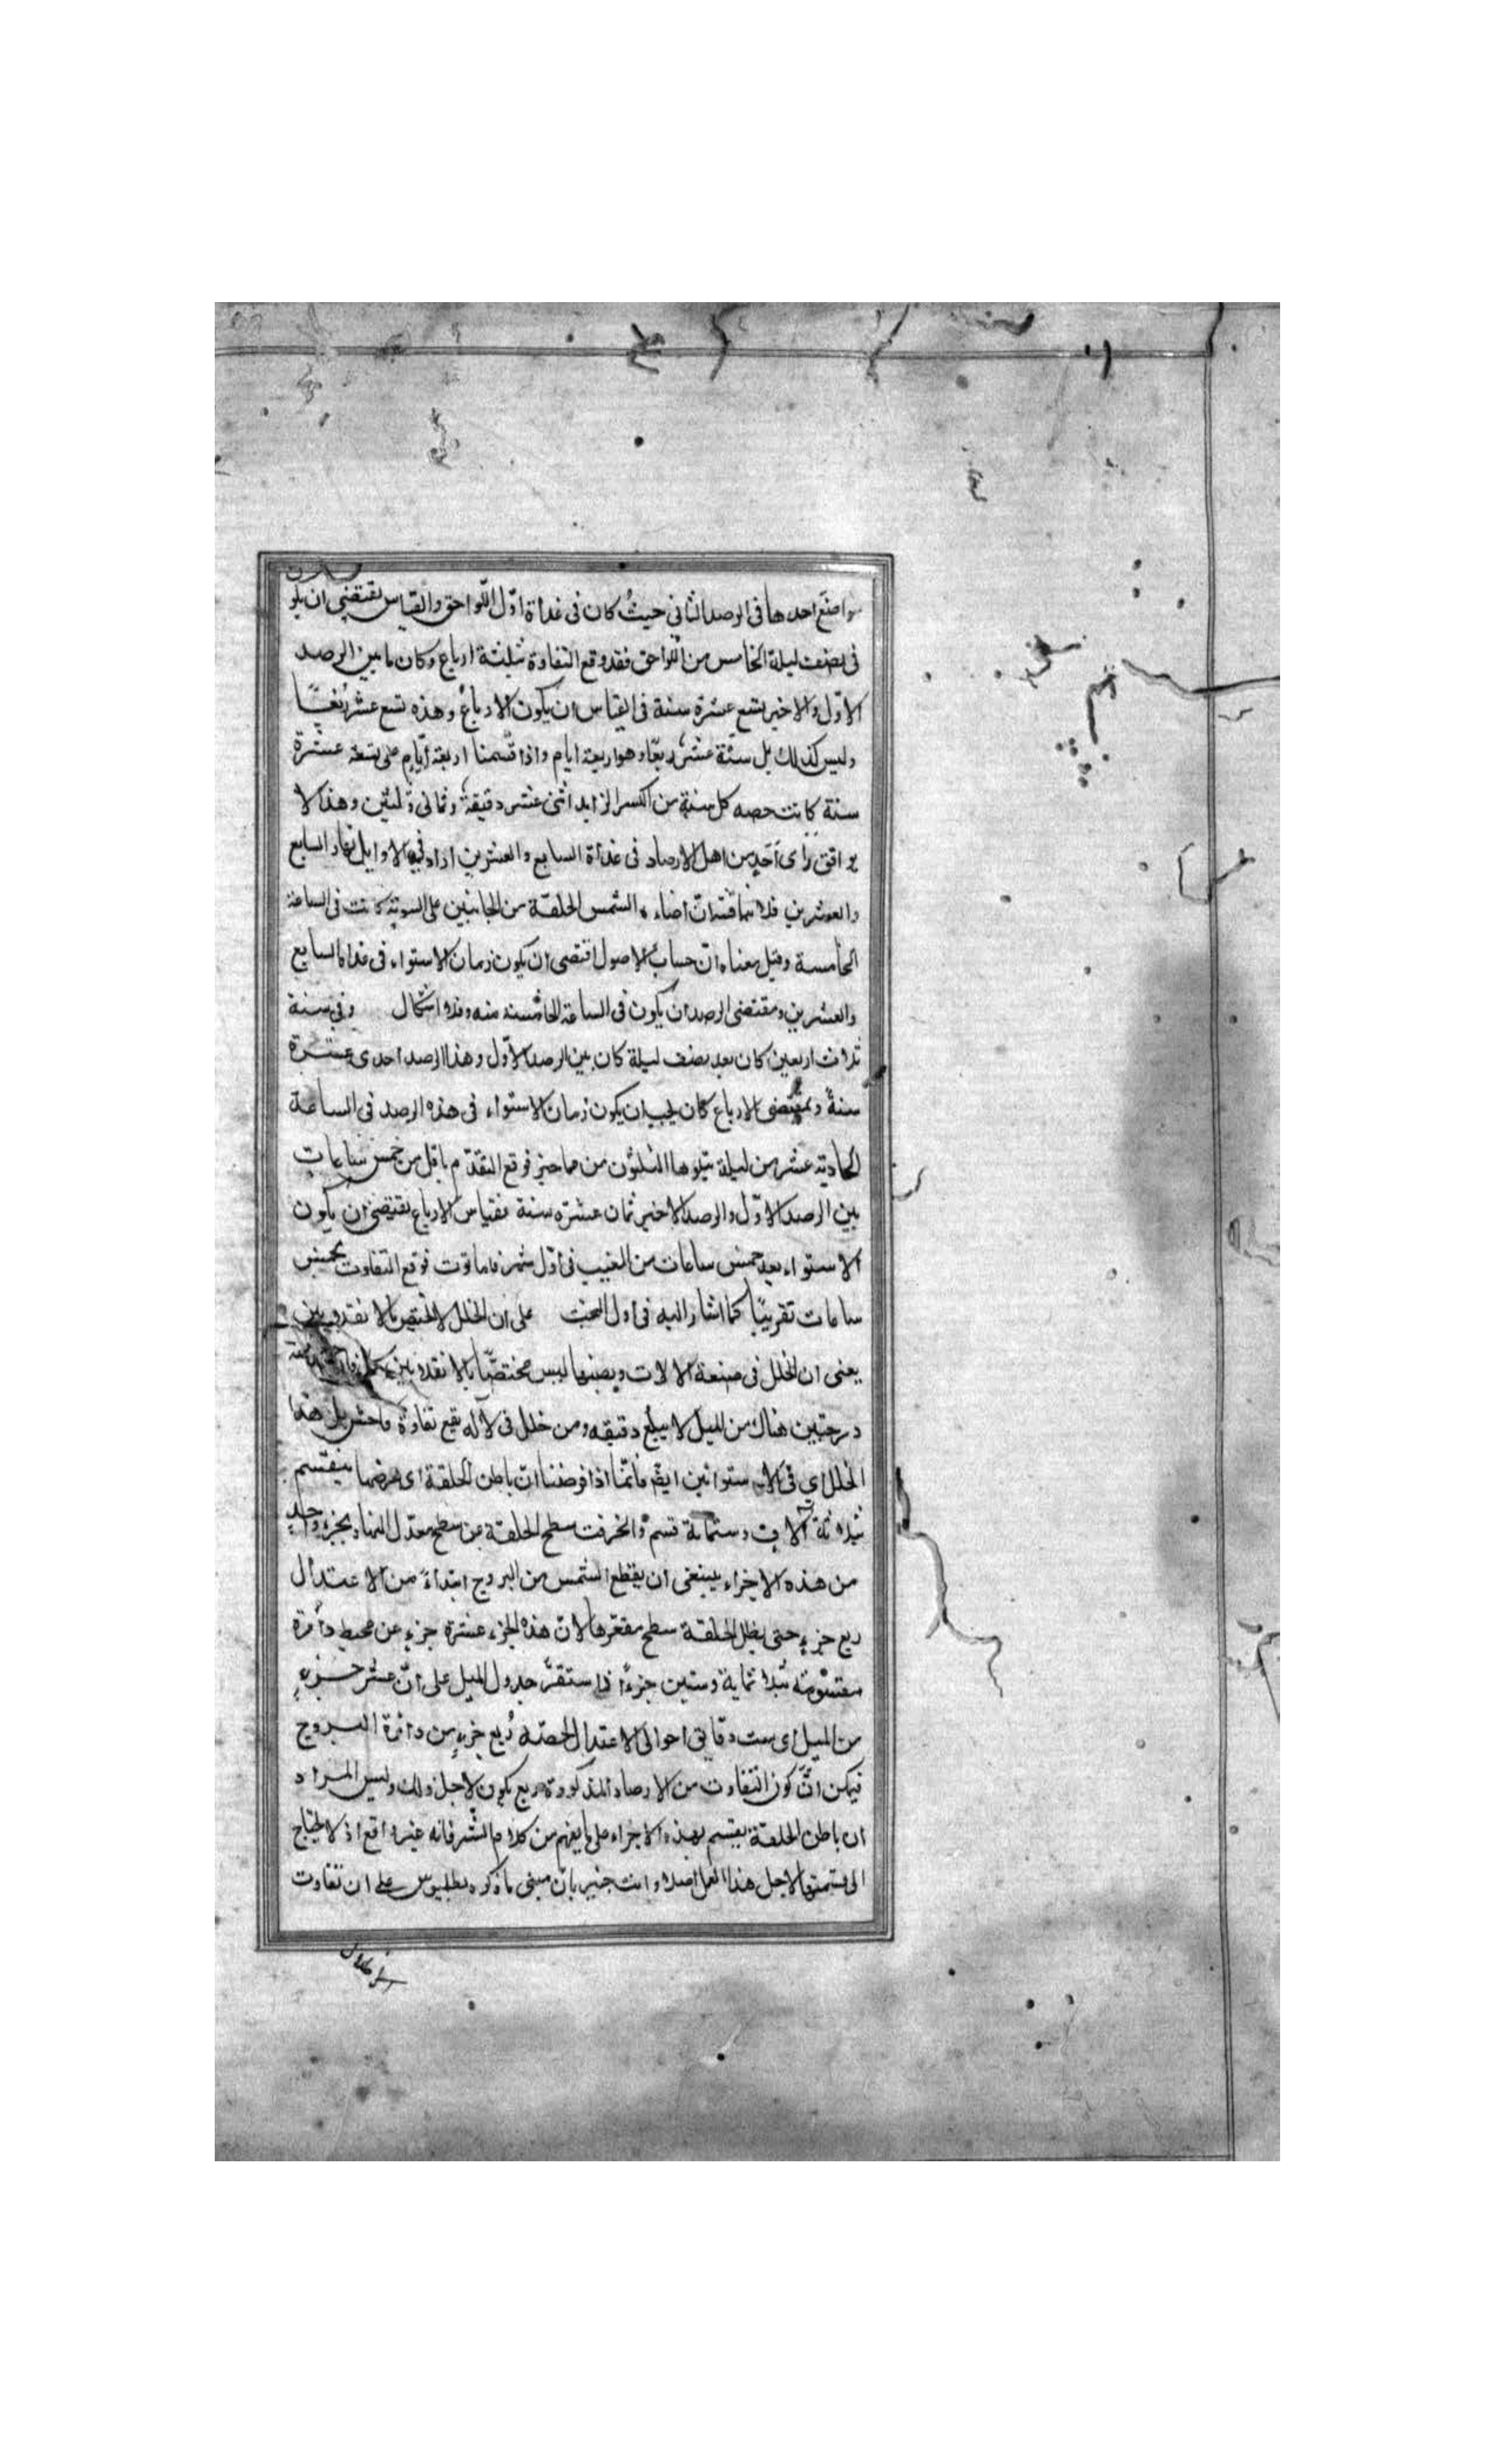 مواضع احدها فى الرصد الثانى حيث كان فى غداة اوّل اللّواحق والقياس يقتضى ان يكو
فى نصف ليلة الخامس من اللواحق فقد وقع التفاوة بثلثة ارباع وكان ما بين الرصد
الاوّل والاخير تسع عشرة سنة فى القياس ان يكون الارباع وهذه تسع عشر رُبعًا
وليس كذلك بل ستّة عشر ربعًا وهو اربعة ايام واذا قسّمنا اربعة ايّام على تسعة عشرة
سنة كانت حصه كل سنة من الكسر الزايد اثنى عشر دقيقة وثمانى وثلثين وهذا لا
يوافق رأى احدٍ من اهل الارصاد فى غداة السابع والعشرين اراد فيه الاوايل نهار السابع
والعشرين فلا نناقشه انّ اضاءه الشمس الحلقة من الجانبين على السوية كانت فى الساعة
الخامسة وقيل معناه انّ حساب الاصول اقتضى ان يكون زمان الاستواء فى غداة السابع
والعشرين ومقتضى الرصد ان يكون فى الساعة الخامسة منه وفلا اشكال وفى سنة
ثلاث اربعين كان بعد نصف ليلة كان بين الرصد الاوّل وهذا الرصد احدى عشرة
سنةً وبمقتضى الارباع كان يجب ان يكون زمان الاستواء فى هذه الرصد فى الساعة
الحادية عشر من ليلة يتلوها الثلثون من مماخير فوقع التقدّم باقل من خمس ساعاتٍ
بين الرصد الاوّل والرصد الاخير ثمان عشرة سنة فقياس الارباع يقتضى ان يكون
الاستواء بعد خمس ساعات من المغيب فى اوّل شهر فاماقوت فوقع التفاوت بخمس
ساعات تقريبًا كما اشار اليه فى اول البحث على ان الخلل لا يختص بالانقلابين
يعنى ان الخلل فى صنعة الالات ونصبها ليس مختصّا بالانقلابين
درجتين هناك من الميل لا يبلغ دقيقه ومن خلل فى الآلة يقع تفاوة فاحش بل هذا
الخلل اى فى الاستوائين ايضً فانّما اذا فرضنا انّ باطن الحلقة اى عرضها ينقسم
بثلاثة آلاف وستمائة قسم وانحرفت سطح الحلقة عن سطح معدّل النهار بجزءٍ واحدٍ
من هذه الاجزاء ينبغى ان يقطع الشمس من البروج ابتداءً من الاعتدال
ربع جزءٍ حتى يظل الحلقة سطح مقعّرها لانّ هذه الجزء عشرة جزءٍ عن محيط دائرة
مقسومة بثلاثماية وستين جزءًا فاستقرّ جدول الميل على انّ عشر جزءٍ
من الميل اى ست دقائق احوالى الاعتدال الحصّه رُبع جزءٍ من دائرة البروج
فيكن انّ كون التفاوت من الارصاد المذكورة بربع يكون لاجل ذلك وليس المراد
ان باطن الحلقة يقسم بهذه الاجزاء على ما يفهم من كلام الشرفانه غير واقع اذ لا يحتاج
الى قسمتها لاجل هذا العمل اصلا وانت خبير بانّ مبنى ما ذكره بطليوس على ان تفاوت